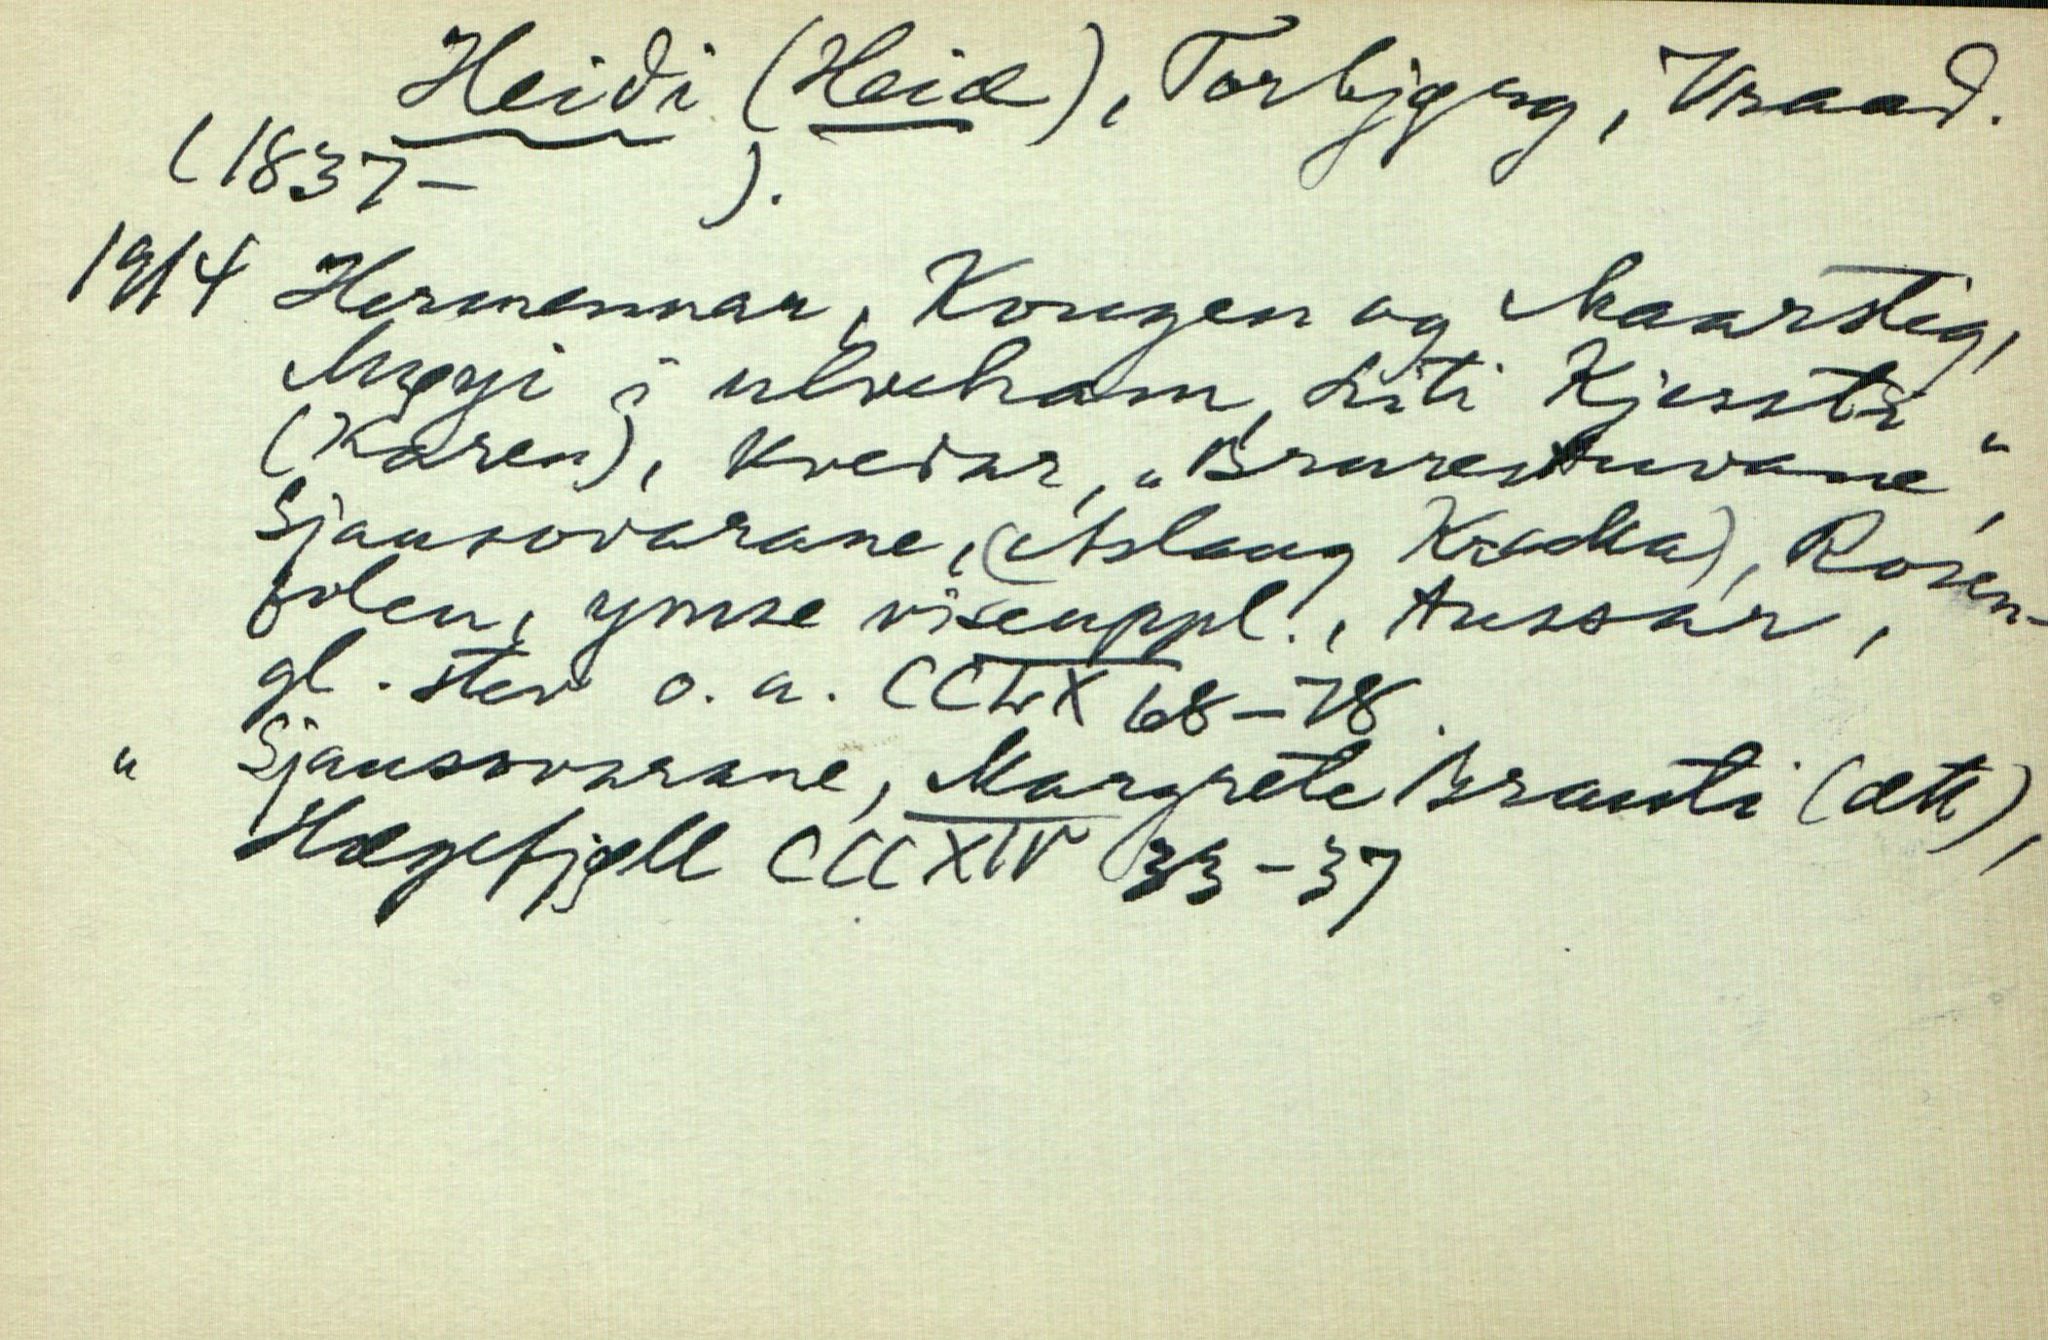 Heiði (Heiæ), Torbjørg, Vraað.
(1837- ).
1914 Hermennar, Kongen og Maarstig,
Møyi i ulveham, Liti Kjersti
(Karen), kveðar, "Brurestuvane",
Sjausovarane, (Aslaug Kraaka), Rosen-
folen, ymse viseuppl., Aussår,
gl. stev o.a. CCLX 68-78.
" Sjausovarane, Margrete Brauti (ætt),
Hægefjøll CCCXIV 33-37